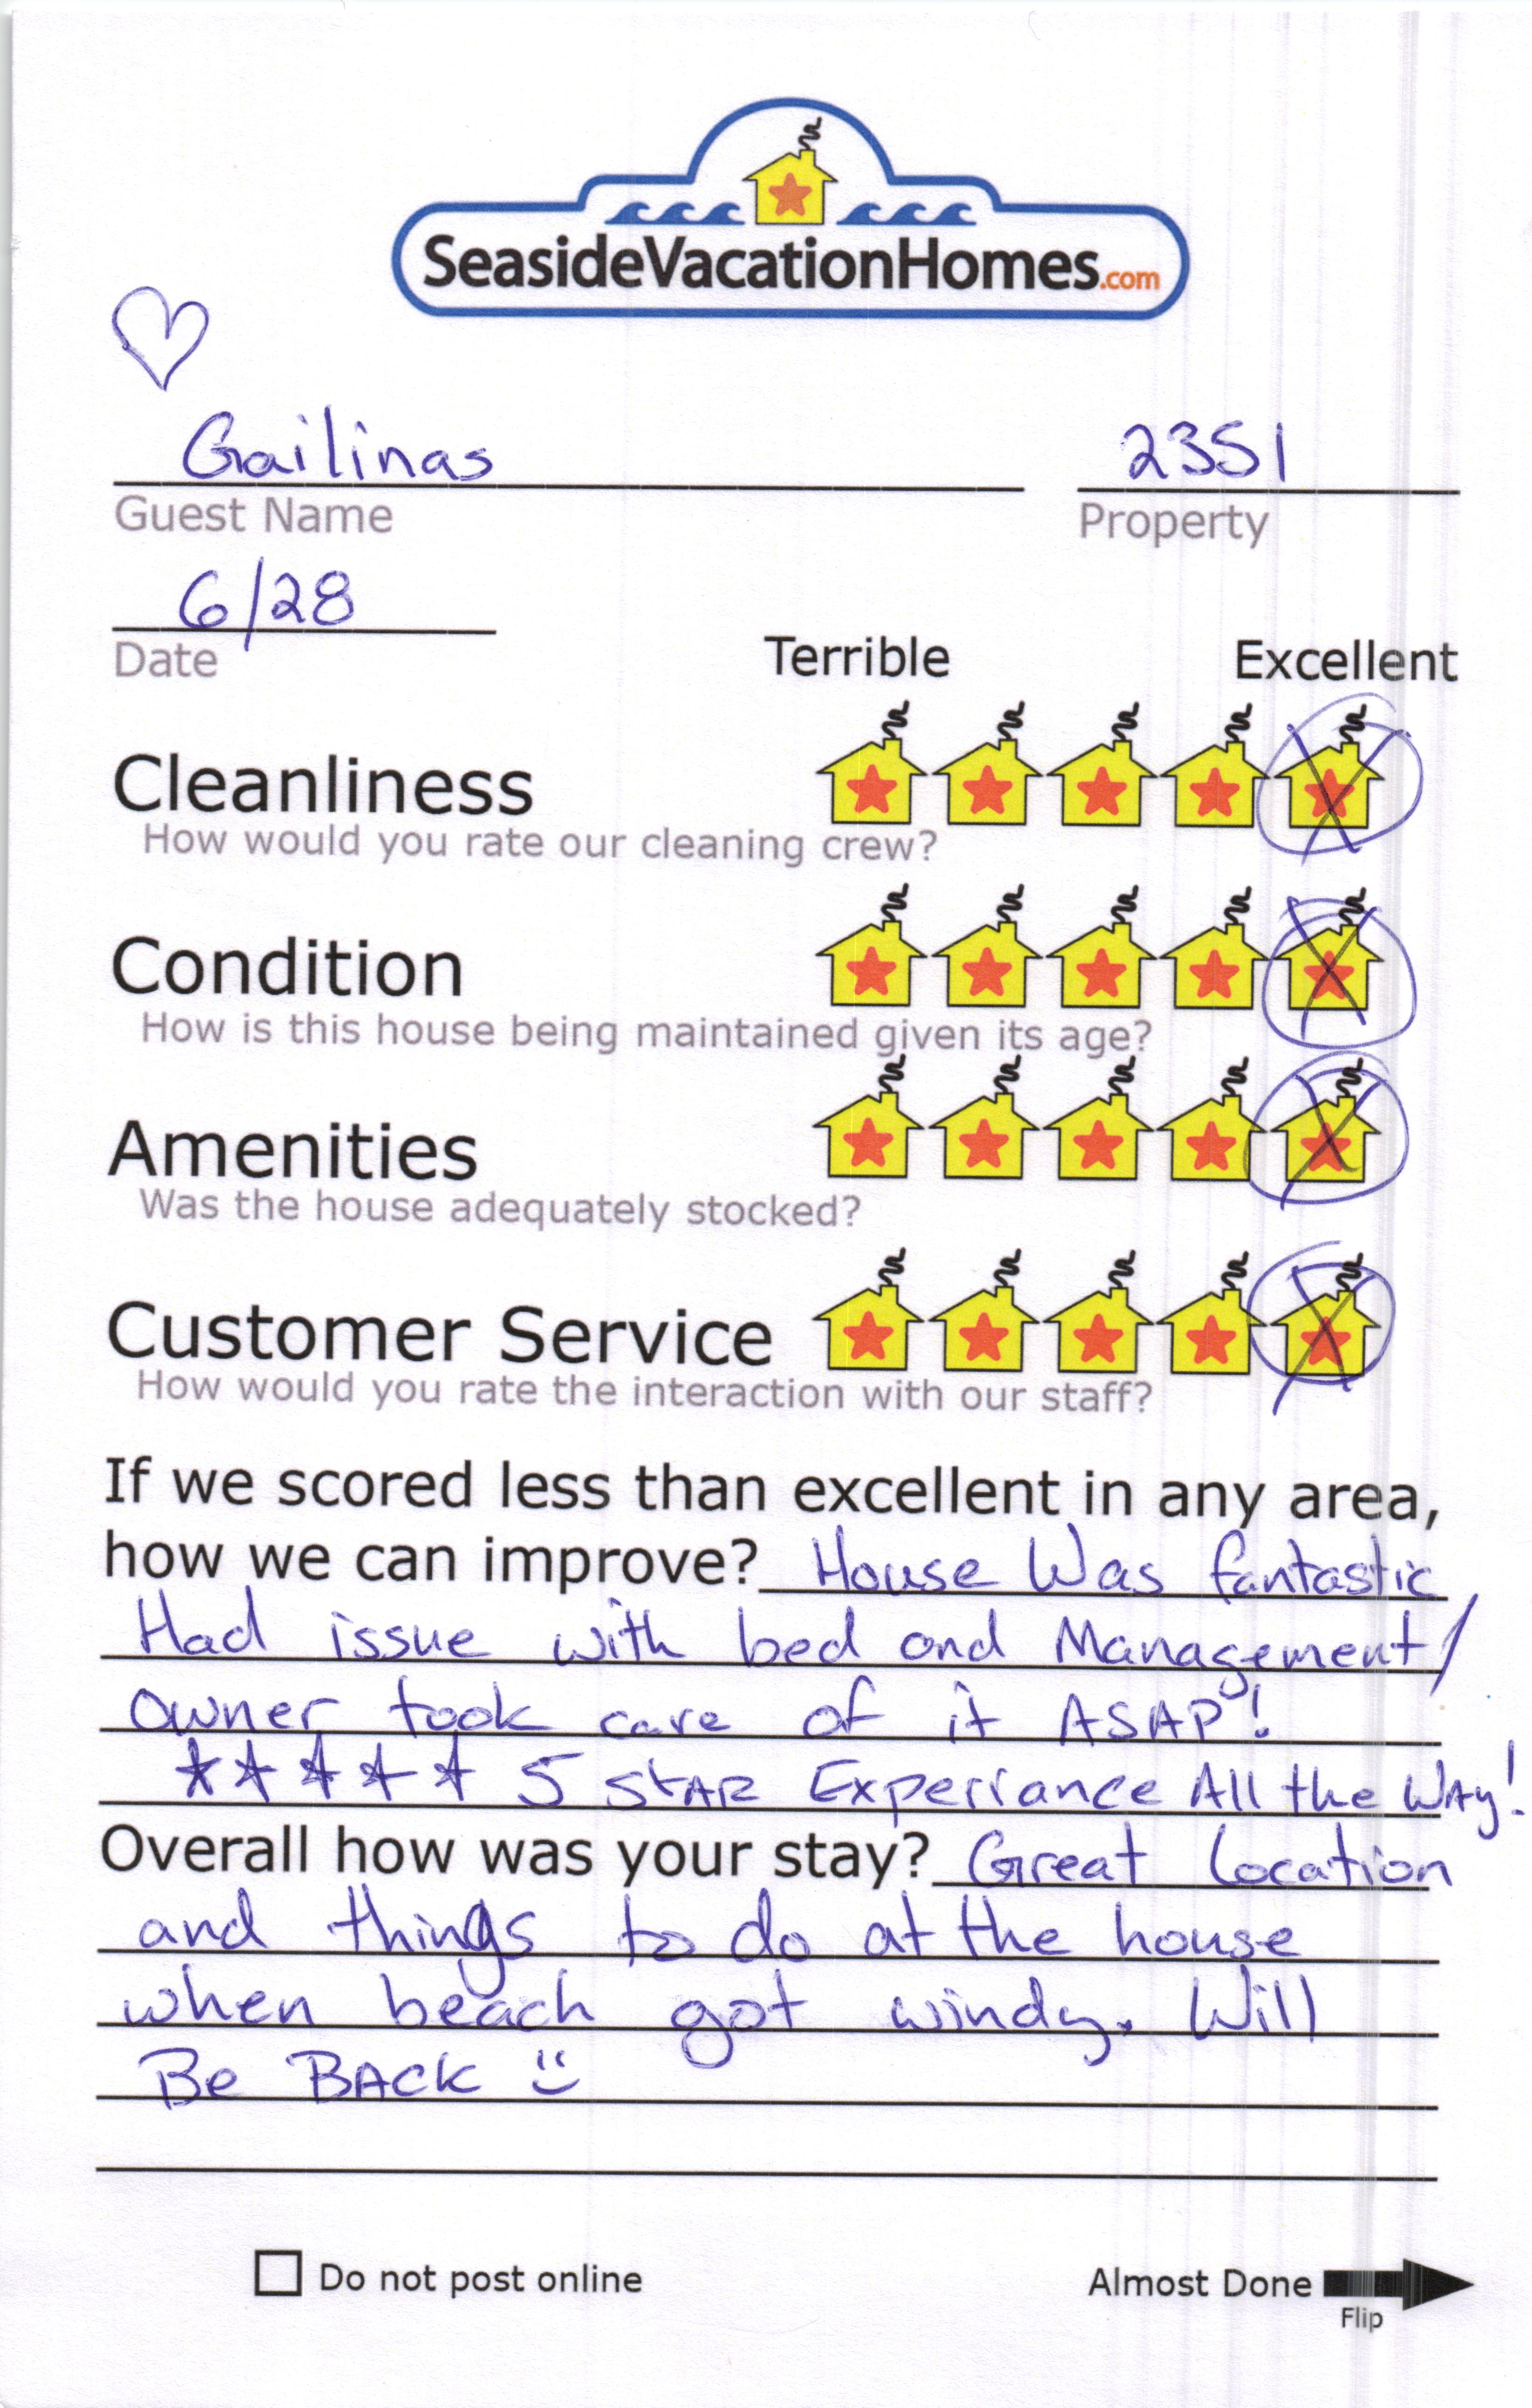 SeasideVacationHomes.com
Gailinas 2351
Guest Name Property
6/28
Date
Terrible Excellent
Cleanliness
How would you rate our cleaning crew?
Condition
How is this house being maintained given its age?
Amenities
Was the house adequately stocked?
Customer Service
How would you rate the interaction with our staff?
If we scored less than excellent in any area,
how we can improve? House Was fantastic
Had issue with bed and Management/
Owner took care of it ASAP!
★★★★★ 5 STAR Experiance All the WAy!
Overall how was your stay? Great Location
and things to do at the house
when beach got windy. Will
Be BACK
Do not post online Almost Done
Flip